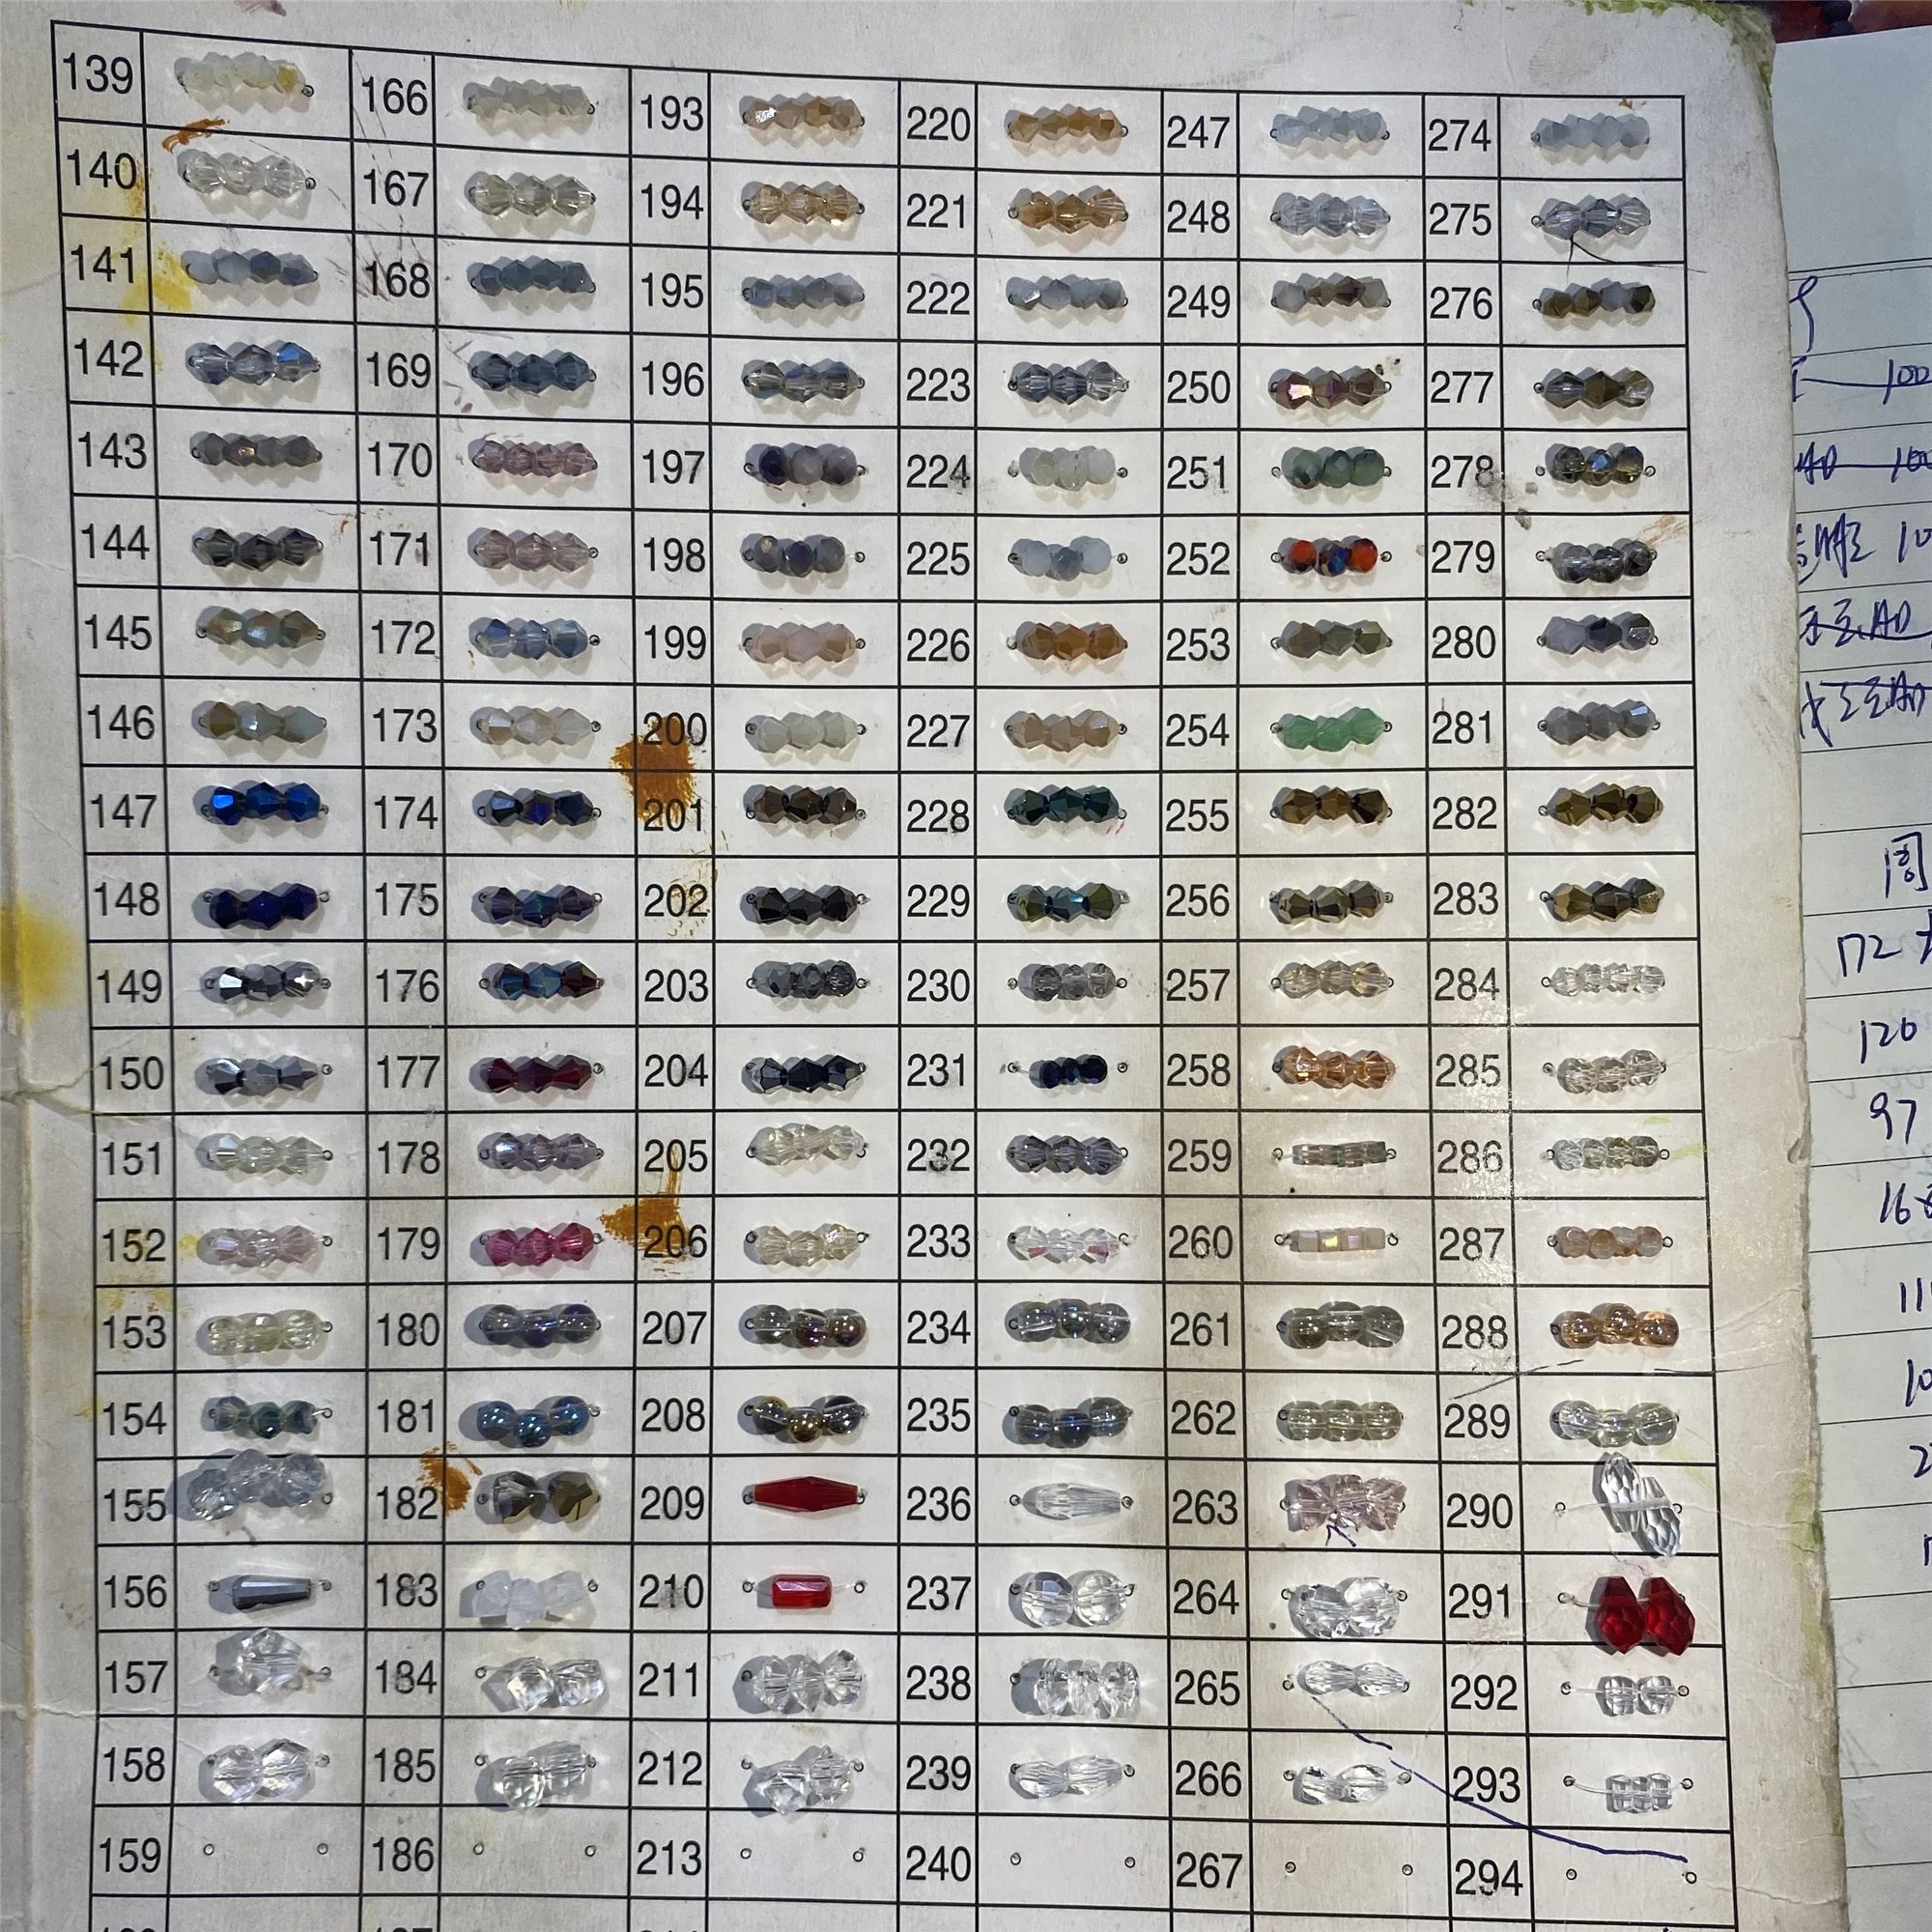 139 166 193 220 247 274
140 167 194 221 248 275
141 168 195 222 249 276
142 169 196 223 250 277
143 170 197 224 251 278
144 171 198 225 252 279
145 172 199 226 253 280
146 173 200 227 254 281
147 174 201 228 255 282
148 175 202 229 256 283
149 176 203 230 257 284
150 177 204 231 258 285
151 178 205 232 259 286
152 179 206 233 260 287
153 180 207 234 261 288
154 181 208 235 262 289
155 182 209 236 263 290
156 183 210 237 264 291
157 184 211 238 265 292
158 185 212 239 266 293
159 186 213 240 267 294
100
172
120
97